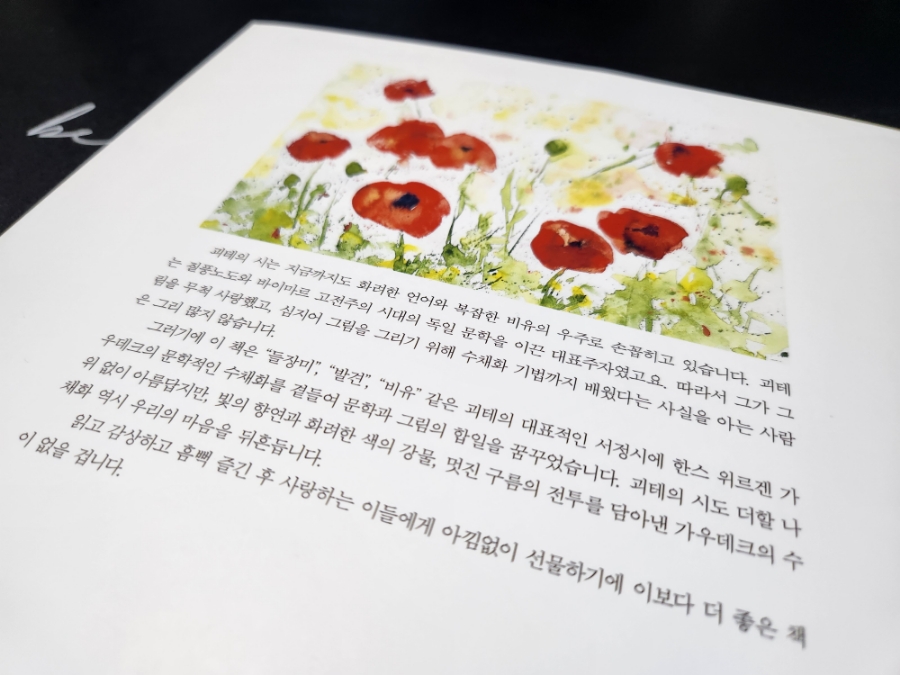 be
괴테의 시는 지금까지도 화려한 언어와 복잡한 비유의 우주로 손꼽히고 있습니다. 괴테
는 질풍노도와 바이마르 고전주의 시대의 독일 문학을 이끈 대표주자였고요. 따라서 그가 그
림을 무척 사랑했고, 심지어 그림을 그리기 위해 수채화 기법까지 배웠다는 사실을 아는 사람
은 그리 많지 않습니다.
그러기에 이 책은 “들장미”, “발견”, “비유” 같은 괴테의 대표적인 서정시에 한스 위르겐 가
우데크의 문학적인 수채화를 곁들여 문학과 그림의 합일을 꿈꾸었습니다. 괴테의 시도 더할 나
위 없이 아름답지만, 빛의 향연과 화려한 색의 강물, 멋진 구름의 전투를 담아낸 가우데크의 수
채화 역시 우리의 마음을 뒤흔듭니다.
읽고 감상하고 흠뻑 즐긴 후 사랑하는 이들에게 아낌없이 선물하기에 이보다 더 좋은 책
이 없을 겁니다.